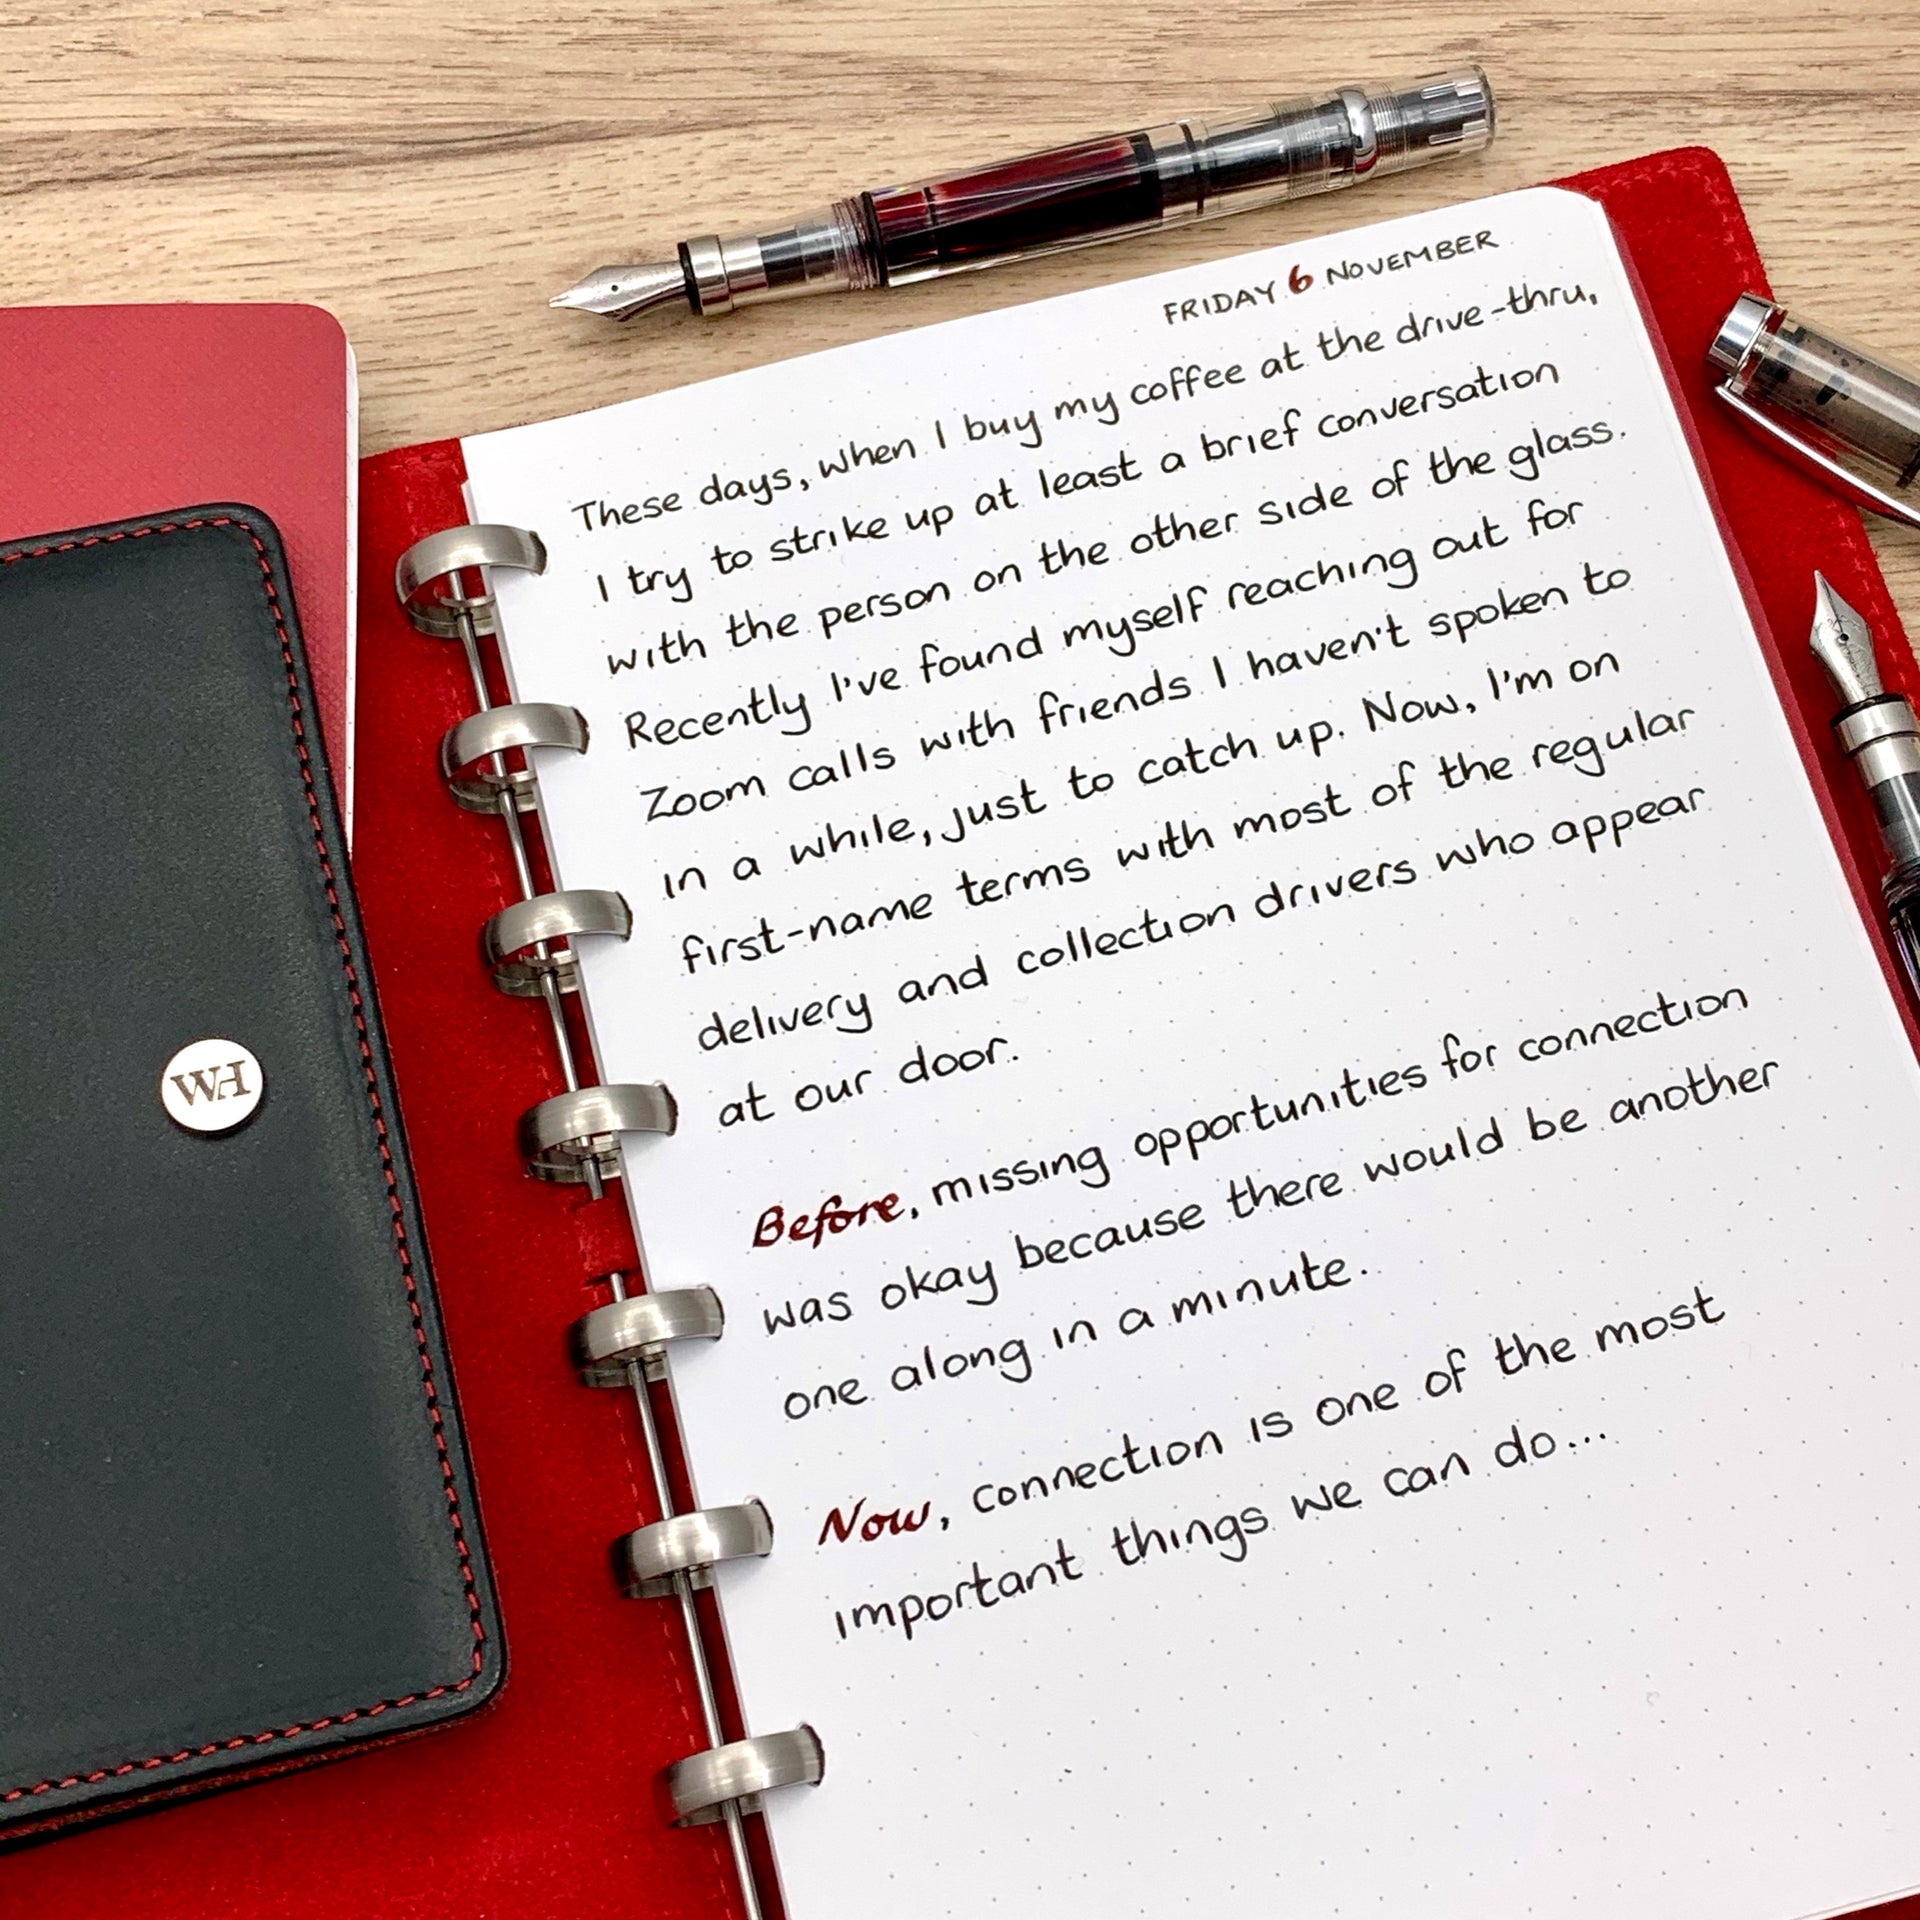 FRIDAY 6 NOVEMBER
These days, when I buy my coffee at the drive-thru,
I try to strike up at least a brief conversation
with the person on the other side of the glass.
Recently I've found myself reaching out for
Zoom calls with friends I haven't spoken to
in a while, just to catch up. Now, I'm on
first-name terms with most of the regular
delivery and collection drivers who appear
at our door.
Before, missing opportunities for connection
was okay because there would be another
one along in a minute.
Now, connection is one of the most
important things we can do...
WH